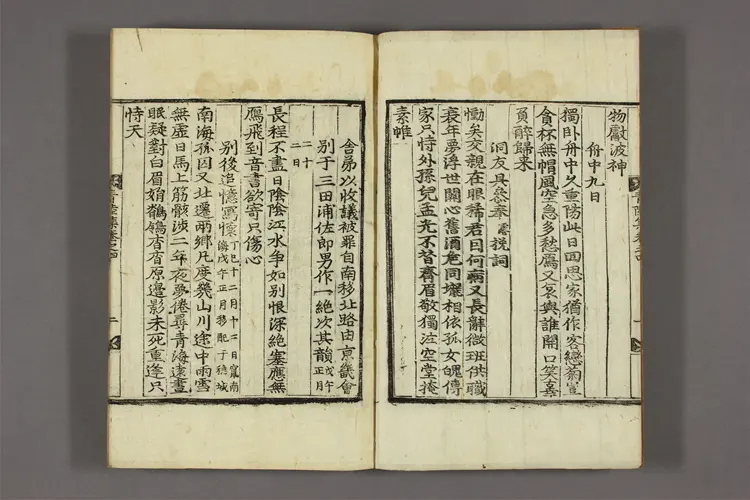 物獻波神
舟中九日
獨卧舟中久重陽此日回思家猶作客戀菊豈
貪杯無帽風空急多愁鴈又哀與誰開口笑嘉
負醉歸來
洞友具參奉挽詞
慟矣交親在眼稀君因何病又長辭微班供職
衰年夢浮世關心舊酒卮同壠相依孤女魄傳
家只恃外孫兒孟光不昔齊眉敬獨泣空堂掩
素帷
舍弟以收議被罪自南移北路由京畿會
別于三田浦佐郎男作一絶次其韻戊午正月
二十二日
長程不盡日陰陰江水爭如別恨深絶塞應無
鴈飛到音書欲寄只傷心
別後追憶寫懷丁巳十二月十二日竄南海戊午正月移配于穩城
南海孤囚又北遷兩鄕凡度幾山川途中雨雪
無虛日馬上筋骸涉二年夜夢倦尋青海遠晝
眠疑對白眉姸鶺鴒杳杳原邊影未死重逢只
恃天